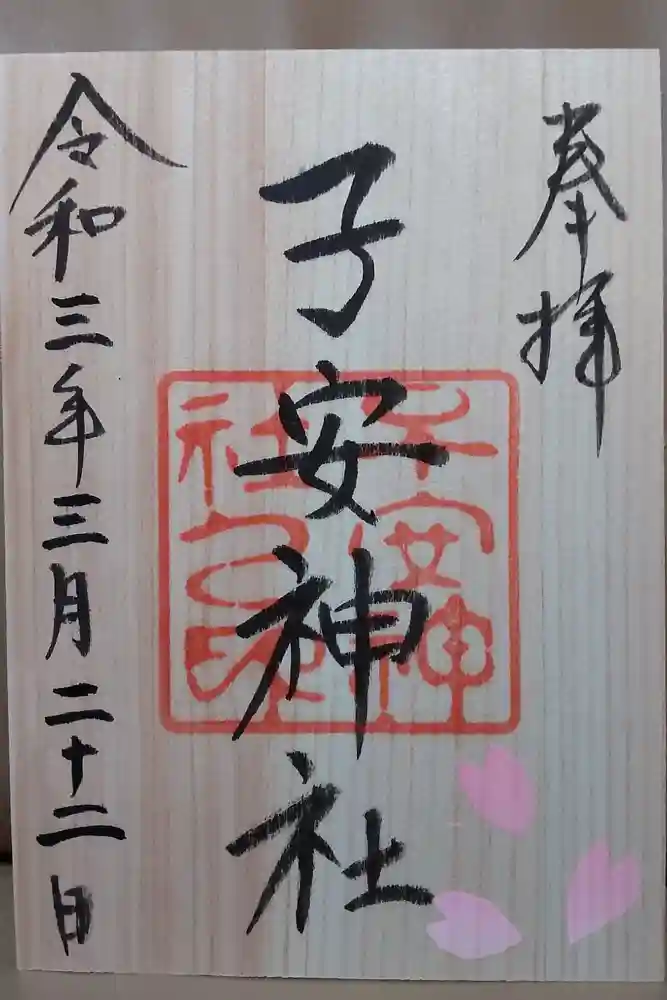 奉拝
子安神社
子安神
社之印
令和三年三月二十二日